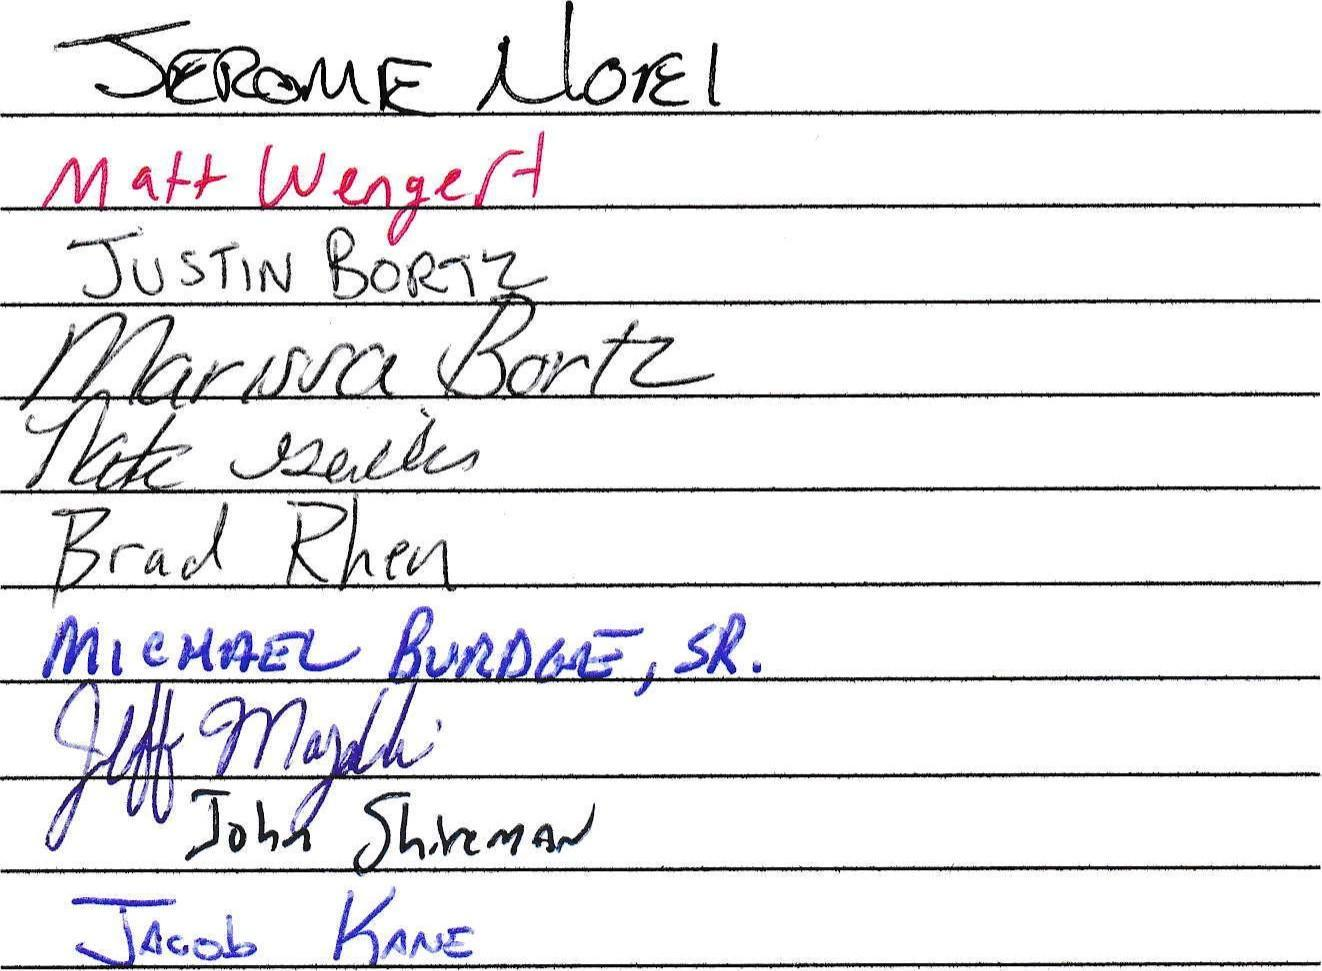 JEROME NOTEL
Matt Wengert
JUSTIN BORTZ
Marissa Bortz
Nate
Brad Rhen
MICHAEL BURDGE, SR.
Jeff
John Shireman
JACOB KANE